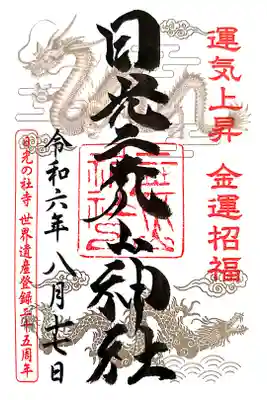 運気上昇 金運招福
日光二荒山神社
令和六年八月十七日
日光の社寺 世界遺産登録二十五周年